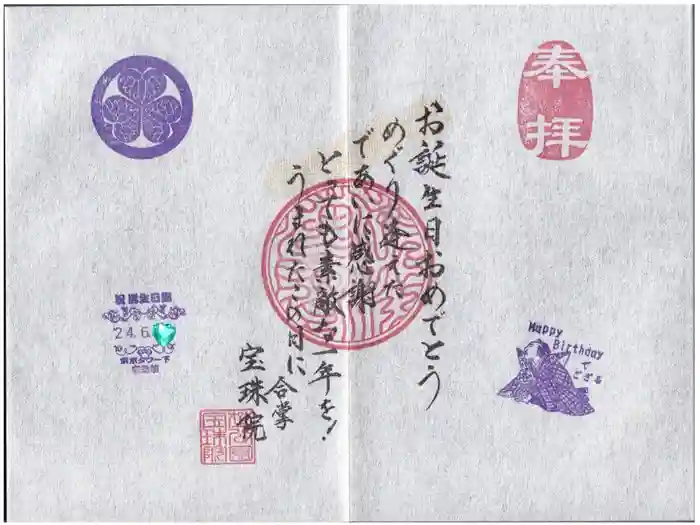 奉拝
お誕生日おめでとう
めぐり逢えた
であいに感謝
とっても素敵な一年を!
うまれたこの日に
合掌
宝珠院
Happy
Birthday
で
ござる
祝御生日園
24.6.
東京タワー下
宝珠院